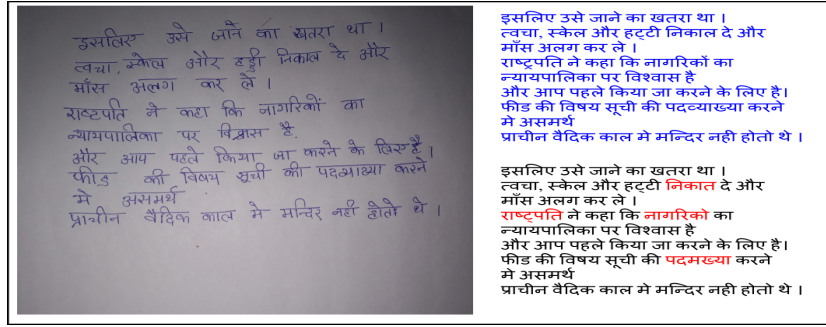 इसलिए उसे जाने का खतरा था ।
त्वचा, स्केल और हड्डी निकाल दे और
माँस अलग कर ले ।
राष्टपति ने कहा कि नागरिकों का
न्यायपालिका पर विश्वास है.
और आप पहले किया जा करने के लिए है।
फीड की विषय सूची की पदव्याख्या करने
मे असमर्थ
प्राचीन वैदिक काल मे मन्दिर नही होतो थे ।
इसलिए उसे जाने का खतरा था ।
त्वचा, स्केल और हट्टी निकाल दे और
माँस अलग कर ले ।
राष्ट्रपति ने कहा कि नागरिकों का
न्यायपालिका पर विश्वास है
और आप पहले किया जा करने के लिए है।
फीड की विषय सूची की पदव्याख्या करने
मे असमर्थ
प्राचीन वैदिक काल मे मन्दिर नही होतो थे ।
इसलिए उसे जाने का खतरा था ।
त्वचा, स्केल और हट्टी निकात दे और
माँस अलग कर ले ।
राष्ट्पति ने कहा कि नागरिको का
न्यायपालिका पर विश्वास है
और आप पहले किया जा करने के लिए है।
फीड की विषय सूची की पदमख्या करने
मे असमर्थ
प्राचीन वैदिक काल मे मन्दिर नही होतो थे ।